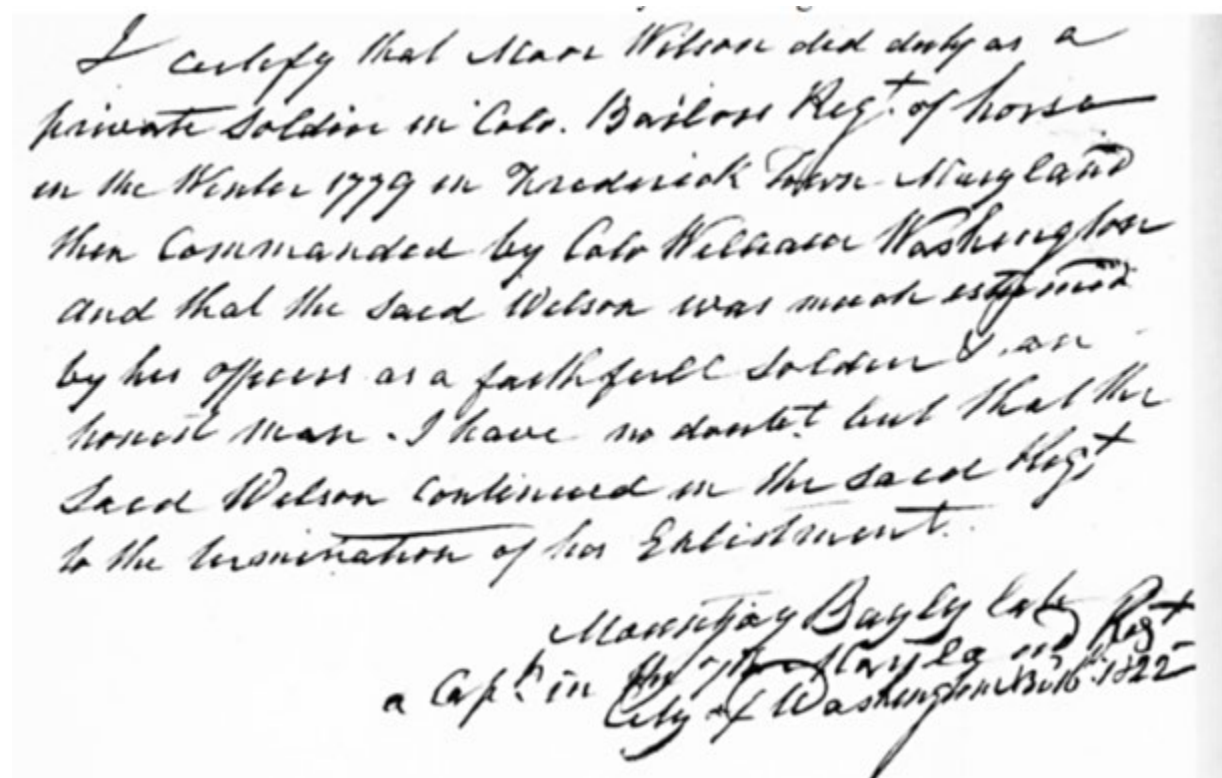 I certify that Marr Wilson did duty as a
private Soldier in Colo. Bailors Regt. of horse
in the Winter 1779 in Frederick Town Maryland
then Commanded by Colo William Washington
and that the Said Wilson was much esteemed
by his officers as a faithfull Soldier & an
honest man. I have no doubt but that the
Said Wilson Continued in the Said Regt
to the termination of his Enlistment.
Mountjoy Bayly late
a Capt. in the 7th Maryland Regt
City of Washington 16th. 1822